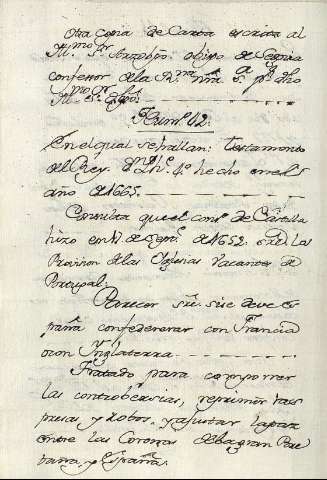 Otra copia de Carta escrita al
Yll.mo S.r Arzobpo. obispo de Segovia
confessor de la R.na nra S.a p.r dho
Yll.mo S.r
Num.o 42.
En el qual se hallan: Testamento
del Rey D.n Ph.e 4.o hecho en el
año de 1665.
Consulta que el cons.o de Castilla
hizo en 11 de de 1652. sre. la
Provision de las Yglesias Vacantes de
Portugal:
Parecer sre. si se deve Es
paña confederarar con Francia
o con Ynglaterra
Tratado para componer
las controbersias, reprimir las
presas y robos, y ajustar la paz
entre las Coronas de la gran Bre
taña, y España.